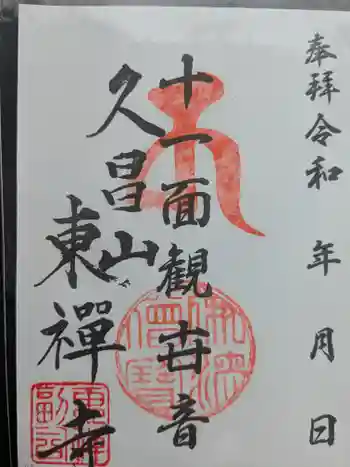 奉拝令和 年 月 日
十一面観世音
久昌山
東禪寺